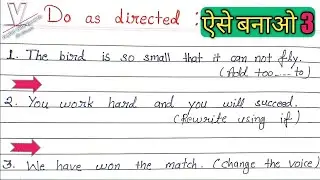 Do as directed : ऐसे बनाओ 3
1. The bird is so small that it can not fly.
(Add too....to)
2. You work hard and you will succeed.
(Rewrite using if)
3. We have won the match. (change the voice)